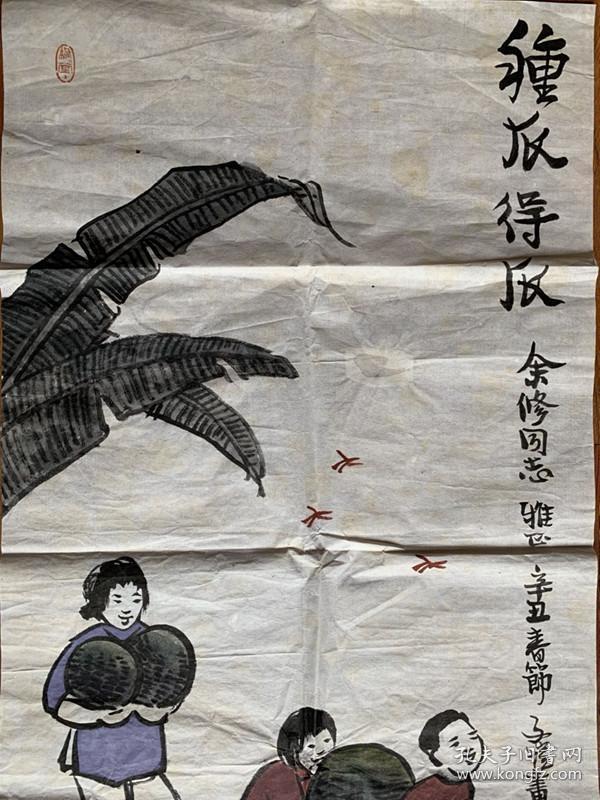 種瓜得瓜
余修同志雅正辛丑春節子愷畫
孔夫子旧書网
www.kongfz.com